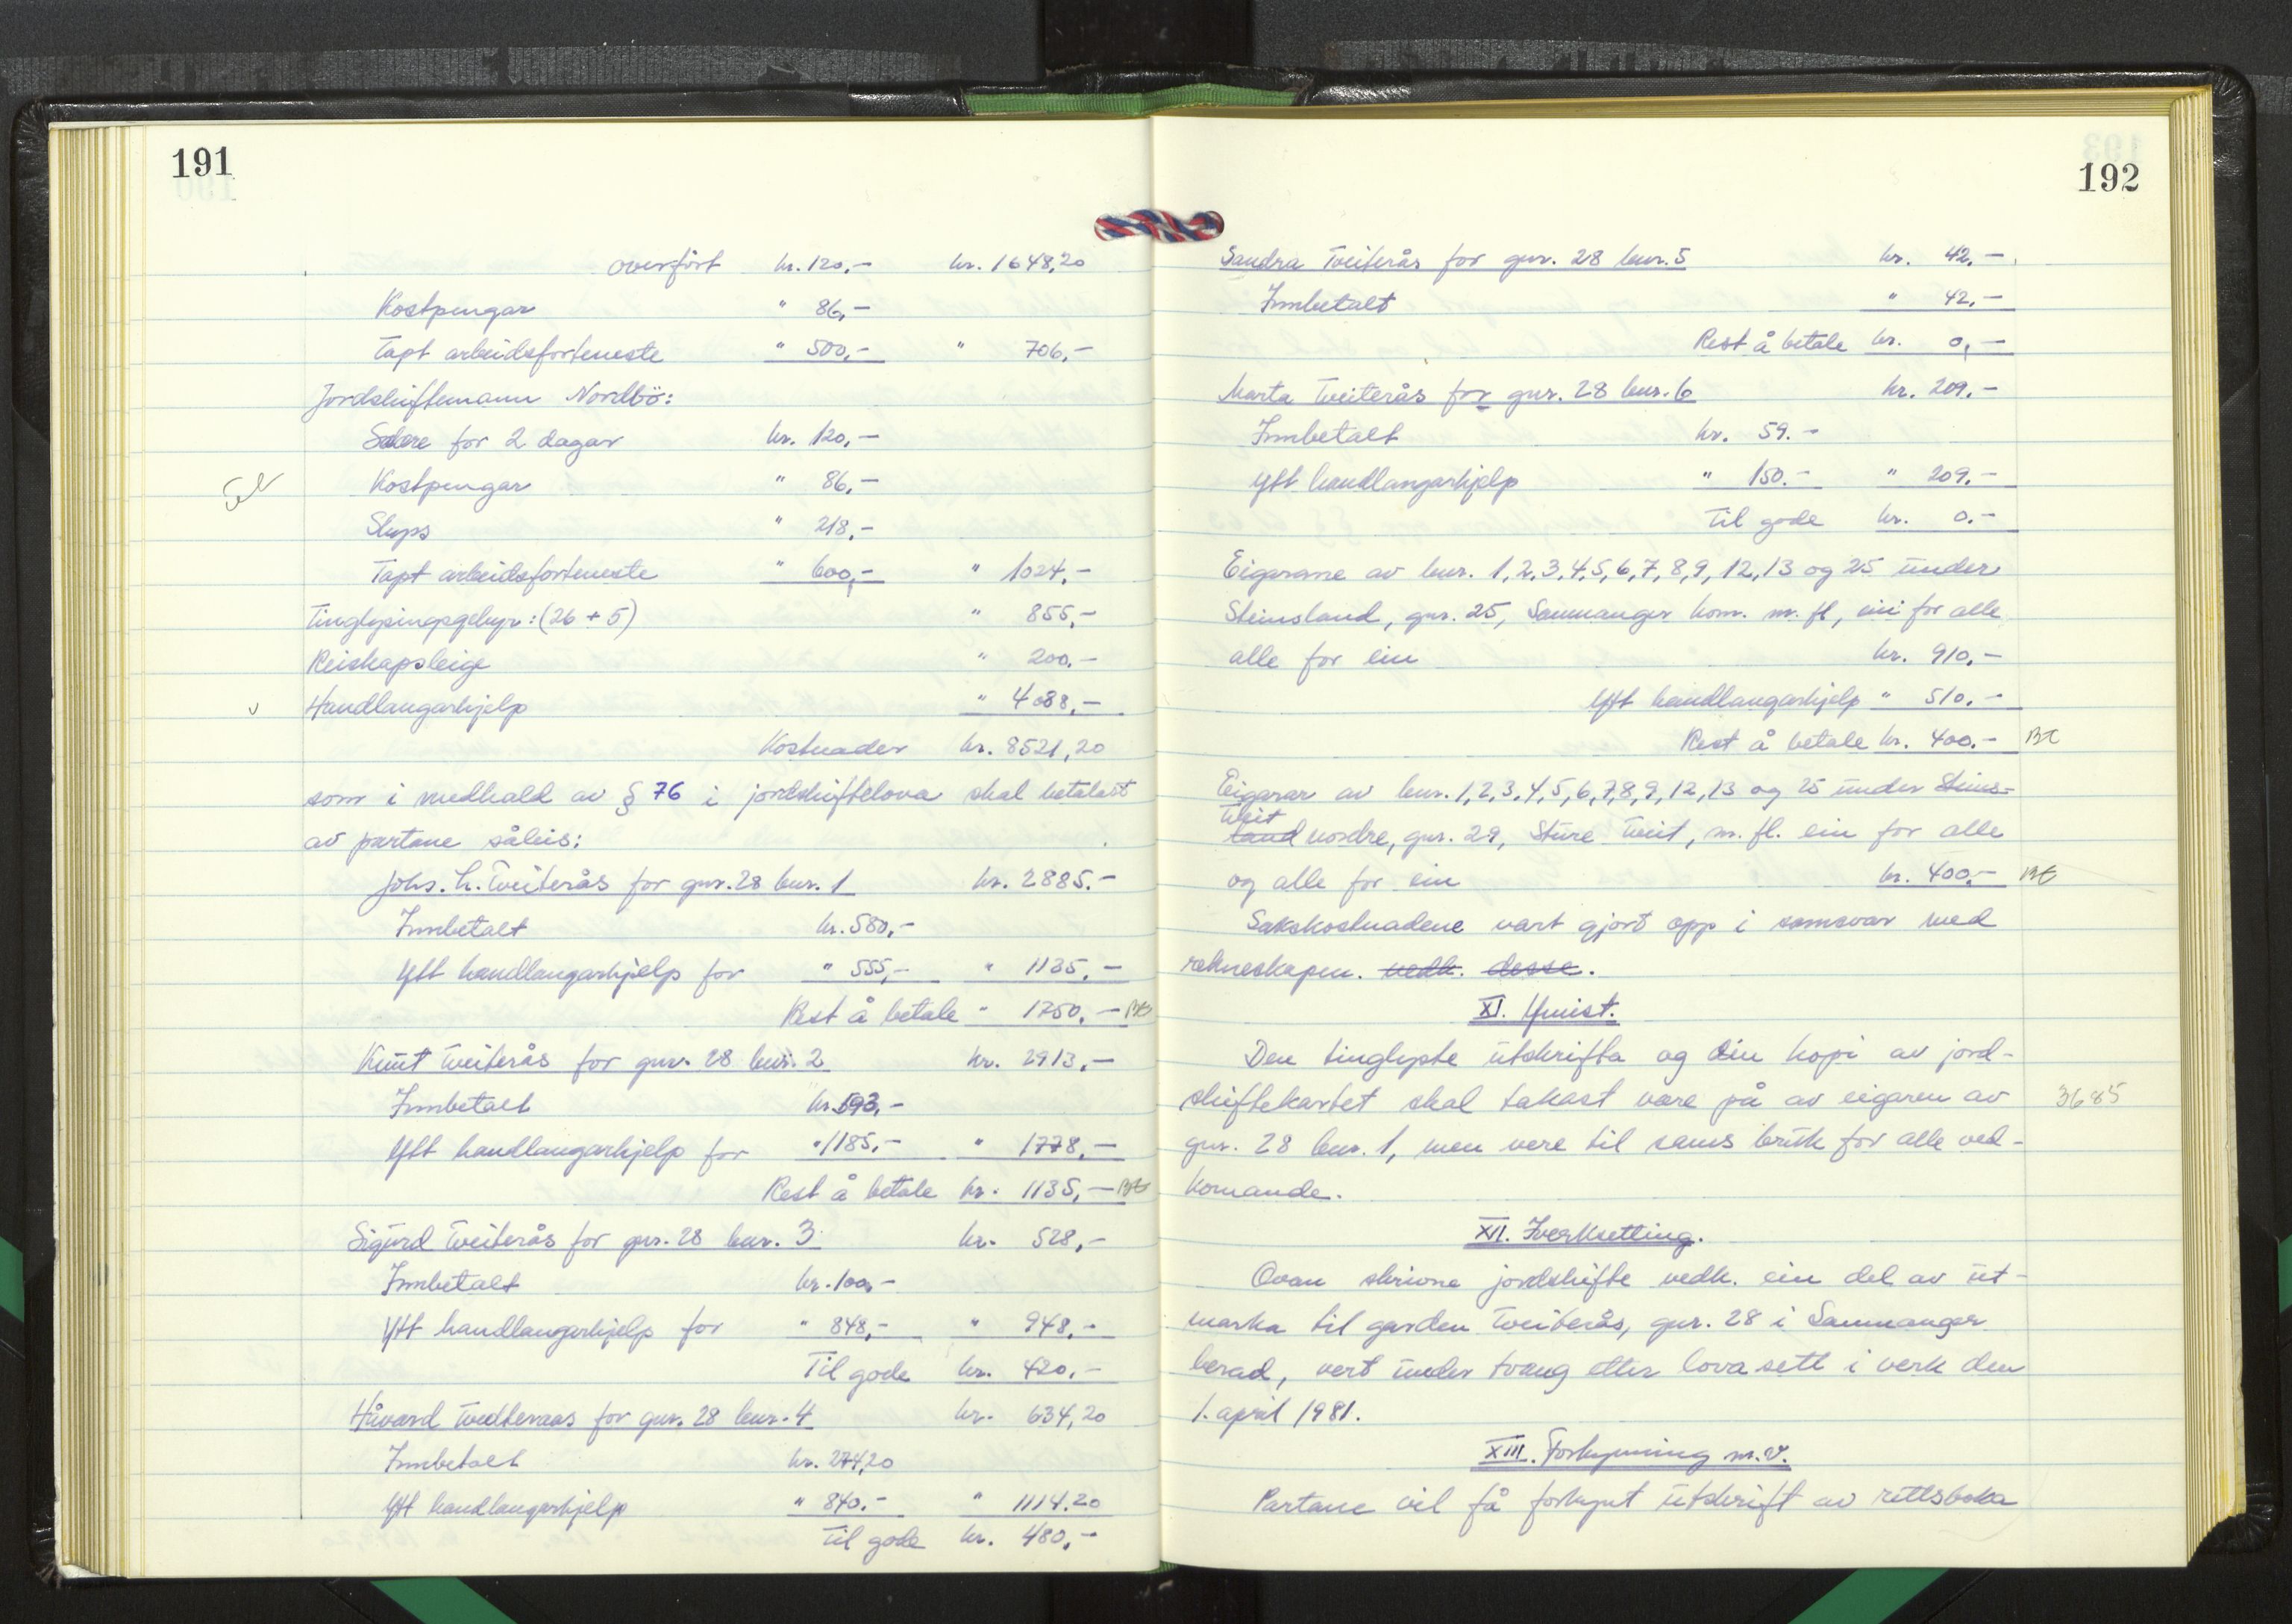 191
overført kr. 120,- kr. 1648,20
Kostpengar " 86,-
Tapt arbeidsforteneste " 500,- " 706,-
Jordskiftemann Nordbö:
Salære for 2 dagar kr. 120,-
Kostpengar " 86,-
Skyss " 218,-
Tapt arbeidsforteneste " 600,- " 1024,-
Tinglysingsgebyr: (26 + 5) " 855,-
Reiskapsleige " 200.-
v Handlangarhjelp " 4088,-
Kostnader kr. 8521,20
som i medhald av § 76 i jordskiftelova skal betalast
av partane såleis:
Johs. H. Tveiterås for gnr. 28 bnr. 1 kr. 2885.-
Innbetalt kr. 580,-
Ytt handlangarhjelp for " 555,- " 1135,-
Rest å betale " 1750,- Bt
Knut Tveiterås for gnr. 28 bnr. 2 kr. 2913,-
Innbetalt kr. 593,-
Ytt handlangarhjelp for " 1185,- " 1778,-
Rest å betale kr. 1135,- Bt
Sigurd Tveiterås for gnr. 28 bnr. 3 kr. 528,-
Innbetalt kr. 100,-
Ytt handlangarhjelp for " 848,- " 948,-
Til gode kr. 420,-
Håvard Tvedteraas for gnr. 28 bnr. 4 kr. 634,20
Innbetalt kr. 274,20
Ytt handlangarhjelp " 840.- " 1114.20
Til gode kr. 480,-
192
Sandra Tveiterås for gnr. 28 bnr. 5 kr. 42,-
Innbetalt " 42,-
Rest å betale kr. 0,-
Marta Tveiterås for gnr. 28 bnr. 6 kr. 209,-
Innbetalt kr. 59.-
Ytt handlangarhjelp " 150.- " 209,-
Til gode kr. 0.-
Eigarane av bnr. 1,2,3,4,5,6,7,8,9,12,13 og 25 under
Steinsland, gnr. 25, Samnanger kom. m. fl, ein for alle
alle for ein kr. 910,-
Ytt handlangarhjelp " 510,-
Rest å betale kr. 400.- Bt
Eigarar av bnr. 1,2,3,4,5,6,7,8,9,12,13 og 25 under Steins=
Tveit
land nordre, gnr. 29, Sture Tveit, m. fl. ein for alle
og alle for ein kr. 400,- Bt
Sakskostnadene vart gjort opp i samsvar med
rekneskapen. vedk. desse.
XI. Ymist.
Den tinglyste utskrifta og ein kopi av jord-
skiftekartet skal takast vare på av eigaren av 3685
gnr. 28 bnr. 1, men vere til sams bruk for alle ved-
komande.
XII. Iverksetting.
Ovan skrivne jordskifte vedk. ein del av ut-
marka til garden Tveiterås, gnr. 28 i Samnanger
herad, vert under tvang etter lova sett i verk den
1. april 1981.
XIII. Forkynning m.v.
Partane vil få forkynt utskrift av rettsboka